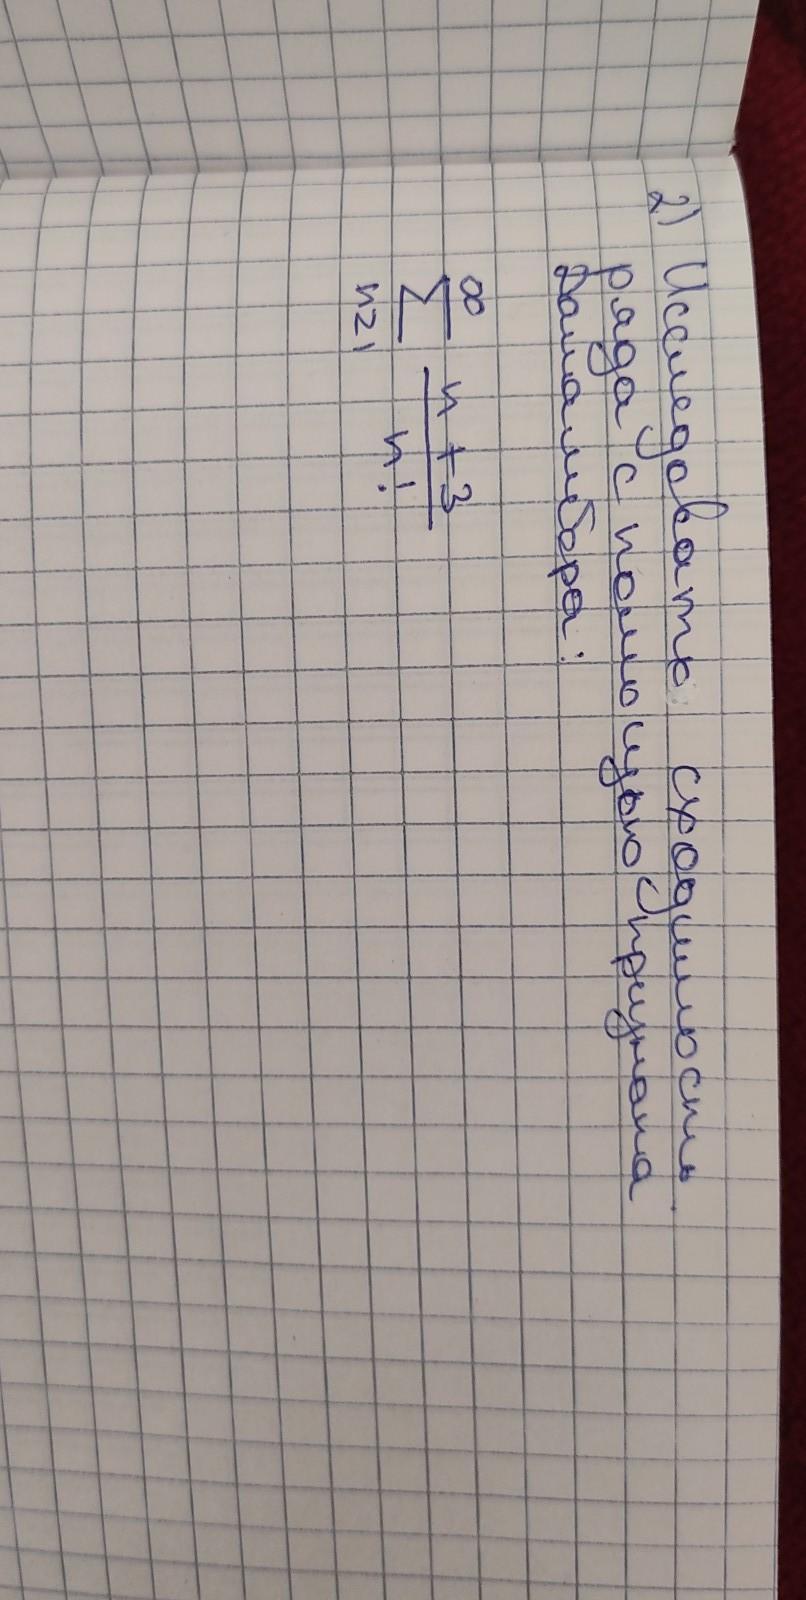 2) Исследовать сходимость
ряда с помощью признака
Даламбера:
∞
∑ n+3 / n!
n=1